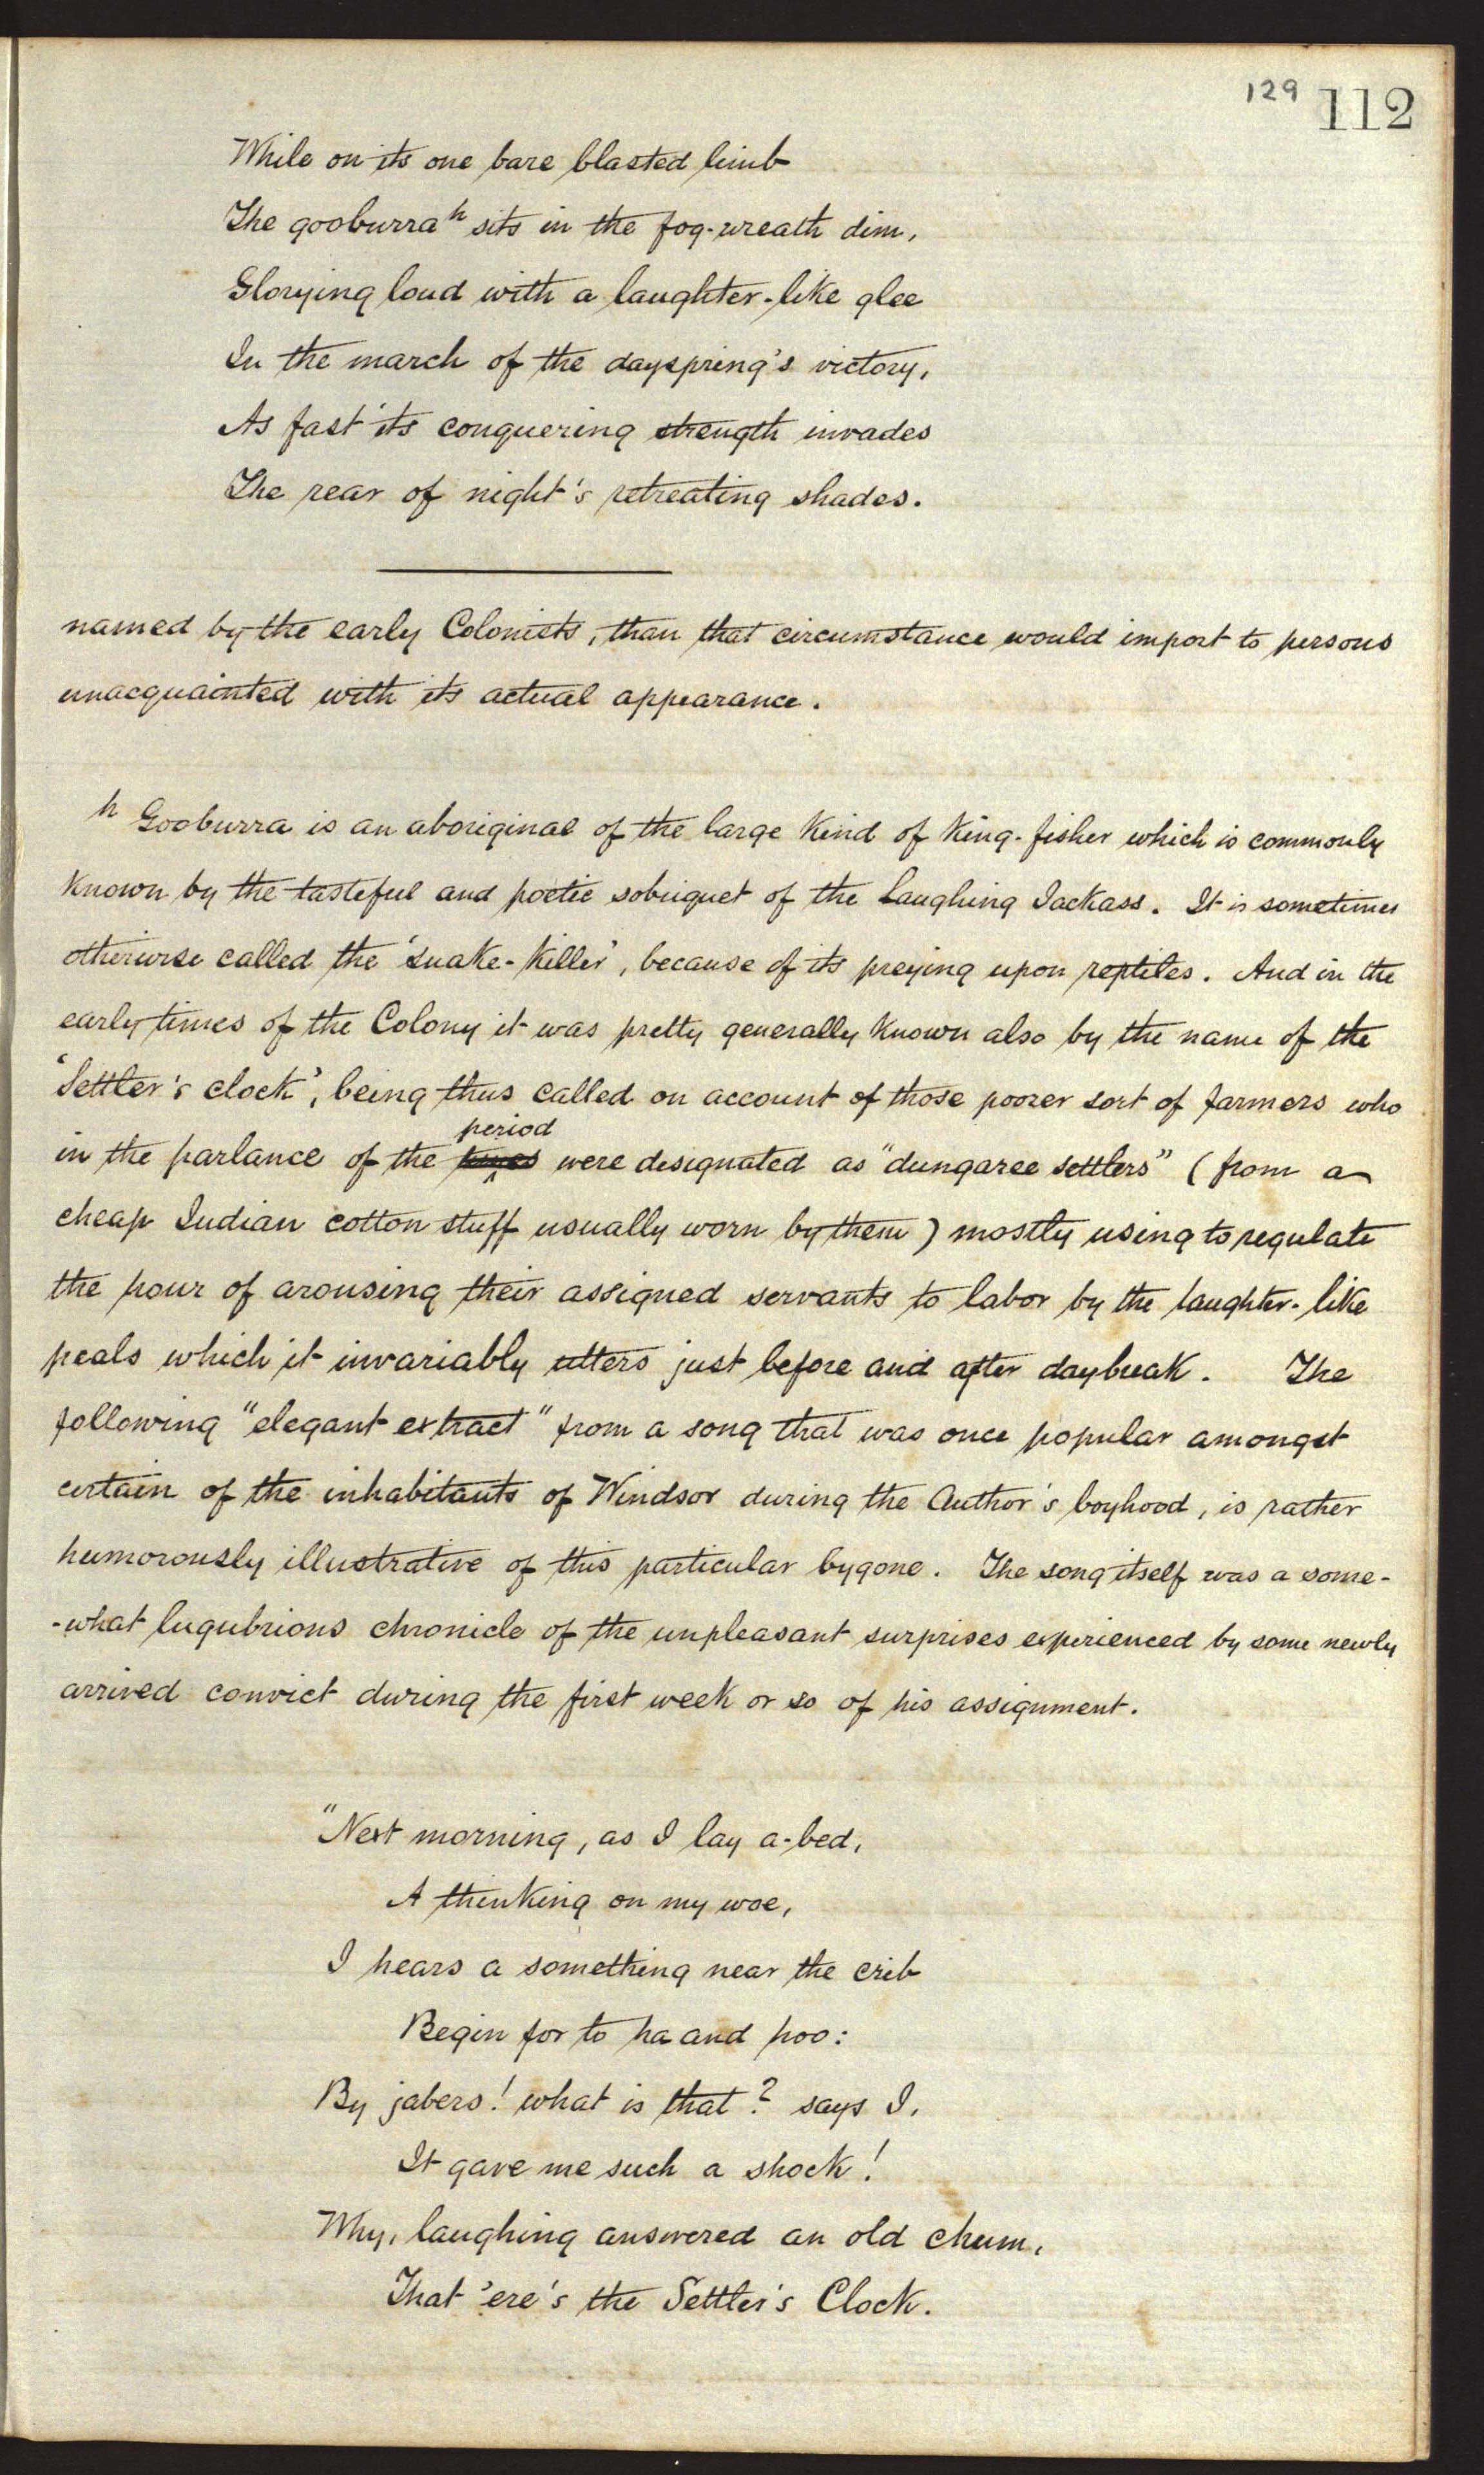 129 112
While on its one bare blasted limb
The gooburra h sits in the fog-wreath dim,
Glorying loud with a laughter-like glee
In the march of the dayspring's victory,
As fast its conquering strength invades
The rear of night's retreating shades.
named by the early Colonists, than that circumstance would import to persons
unacquainted with its actual appearance.
h Gooburra is an aboriginal of the large kind of King-fisher which is commonly
known by the tasteful and poetic sobriquet of the Laughing Jackass. It is sometimes
otherwise called the 'snake-killer', because of its preying upon reptiles. And in the
early times of the Colony it was pretty generally known also by the name of the
'Settler's clock', being thus called on account of those poorer sort of farmers who
period
in the parlance of the were designated as "dungaree settlers" (from a
cheap Indian cotton stuff usually worn by them) mostly using to regulate
the hour of arousing their assigned servants to labor by the laughter-like
peals which it invariably utters just before and after daybreak. The
following "elegant extract" from a song that was once popular amongst
certain of the inhabitants of Windsor during the Author's boyhood, is rather
humorously illustrative of this particular bygone. The song itself was a some-
-what lugubrious chronicle of the unpleasant surprises experienced by some newly
arrived convict during the first week or so of his assignment.
"Next morning, as I lay a-bed,
A thinking on my woe,
I hears a something near the crib
Begin for to ha and hoo:
By jabers! what is that? says I,
It gave me such a shock!
Why, laughing answered an old chum,
That 'ere's the Settler's Clock.